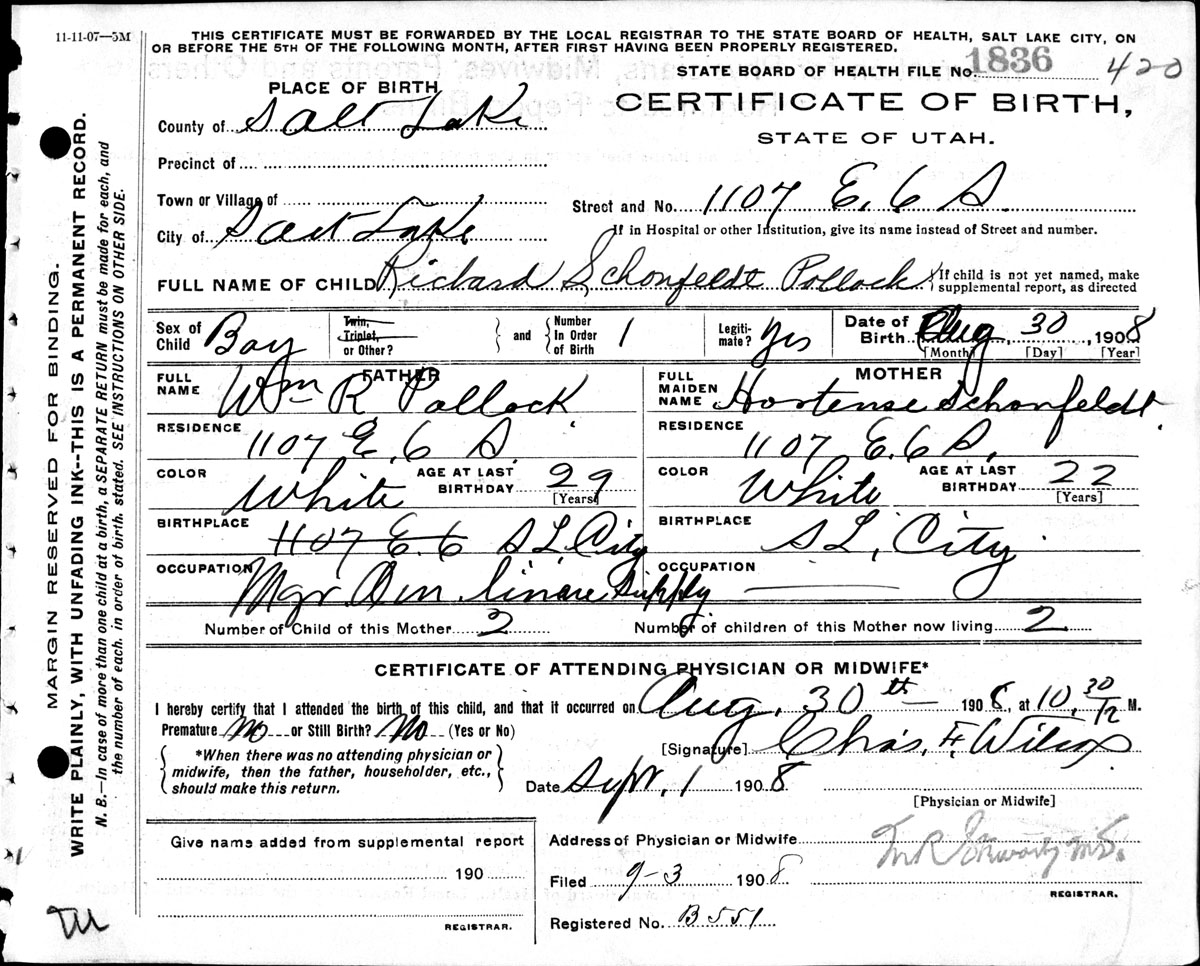 11-11-07—5M
THIS CERTIFICATE MUST BE FORWARDED BY THE LOCAL REGISTRAR TO THE STATE BOARD OF HEALTH, SALT LAKE CITY, ON
OR BEFORE THE 5TH OF THE FOLLOWING MONTH, AFTER FIRST HAVING BEEN PROPERLY REGISTERED.
STATE BOARD OF HEALTH FILE No. 1836 420
PLACE OF BIRTH
CERTIFICATE OF BIRTH,
STATE OF UTAH.
County of Salt Lake
Precinct of
Town or Village of
Street and No. 1107 E. 6 S.
City of Salt Lake
If in Hospital or other Institution, give its name instead of Street and number.
FULL NAME OF CHILD Richard Schonfeldt Pollock
If child is not yet named, make
supplemental report, as directed
Sex of Child Boy
Twin,
Triplet,
or Other?
and
Number
In Order
of Birth 1
Legiti-
mate? Yes
Date of
Birth Aug, 30, 1908
[Month] [Day] [Year]
FATHER
FULL
NAME Wm R Pollock
RESIDENCE
1107 E. 6 S.
COLOR White
AGE AT LAST
BIRTHDAY 29
[Years]
BIRTHPLACE
1107 E. 6 S L City
OCCUPATION
Mgr Supply
MOTHER
FULL
MAIDEN
NAME Hortense Schonfeldt.
RESIDENCE
1107 E. 6 S.
COLOR White
AGE AT LAST
BIRTHDAY 22
[Years]
BIRTHPLACE
S L, City
OCCUPATION
Number of Child of this Mother 2
Number of children of this Mother now living 2
CERTIFICATE OF ATTENDING PHYSICIAN OR MIDWIFE*
I hereby certify that I attended the birth of this child, and that it occurred on Aug. 30th 1908, at 10, 30/12 M.
Premature No or Still Birth? No (Yes or No)
*When there was no attending physician or
midwife, then the father, householder, etc.,
should make this return.
[Signature] Chas. F. Wilcox
Date Sept. 1 1908
[Physician or Midwife]
Give name added from supplemental report
190
REGISTRAR.
Address of Physician or Midwife
Filed 9-3 1908
REGISTRAR.
Registered No. B 551
MARGIN RESERVED FOR BINDING.
WRITE PLAINLY, WITH UNFADING INK--THIS IS A PERMANENT RECORD.
N. B.—In case of more than one child at a birth, a SEPARATE RETURN must be made for each, and
the number of each, in order of birth, stated. SEE INSTRUCTIONS ON OTHER SIDE.